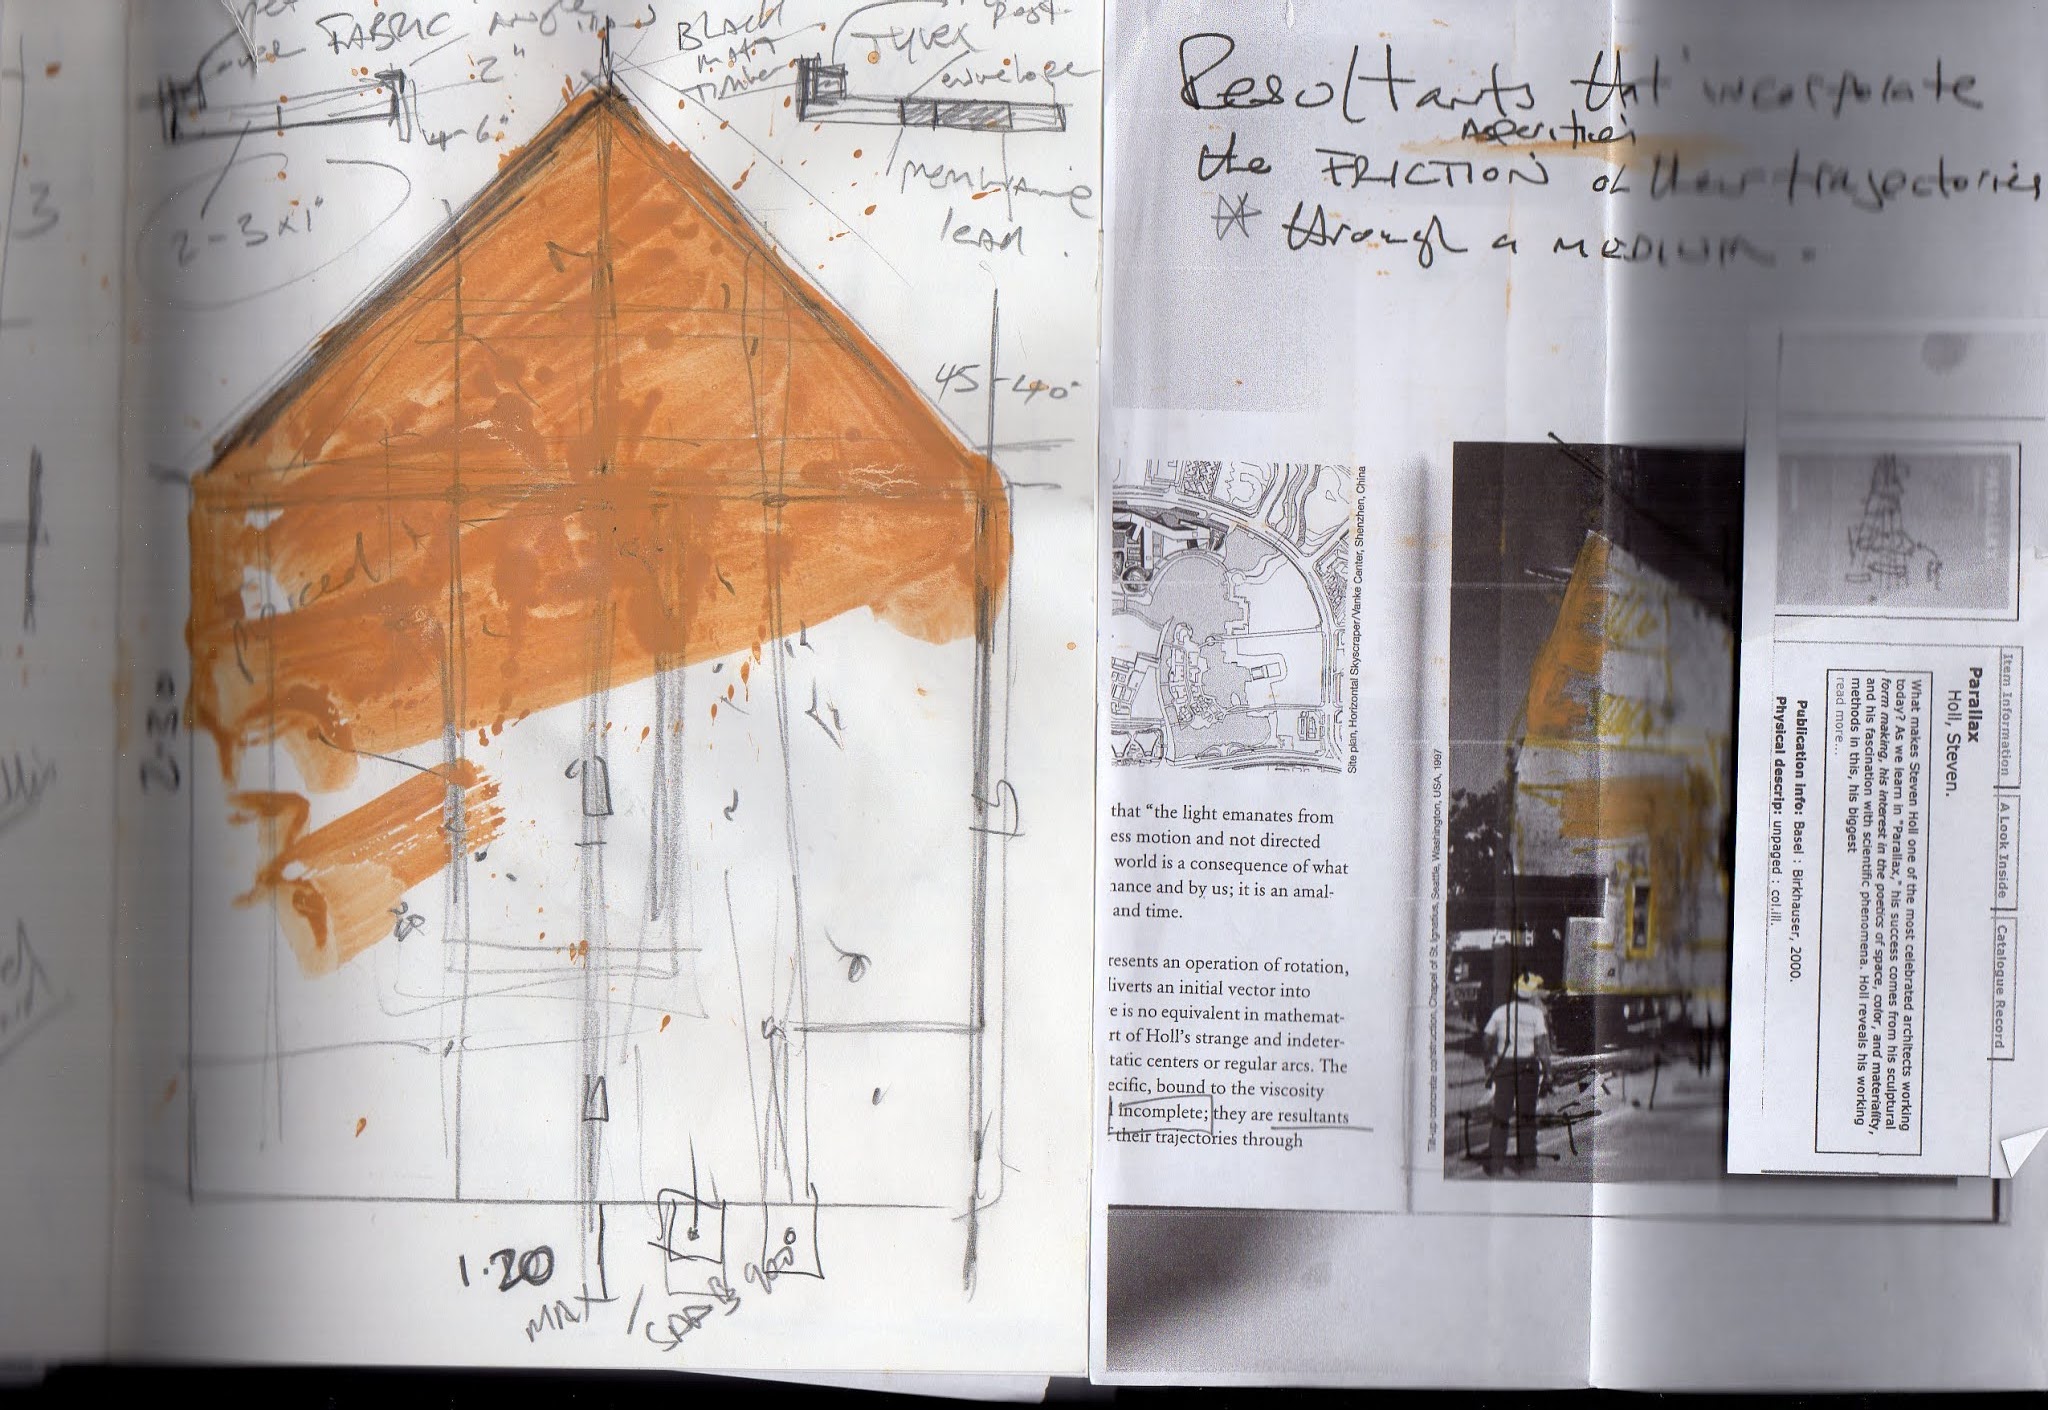 FABRIC
2"
4-6"
2-3x1"
BLACK
matt
timber
TYVEX
post-
envelope
membrane
lead.
45-40°
2-30
1.20
MAX / SAAB 900
3
Resultants that incorporate
asperities
the FRICTION of their trajectories
* through a MEDIUM.
Site plan, Horizontal Skyscraper/Vanke Center, Shenzhen, China
that “the light emanates from
ess motion and not directed
world is a consequence of what
nance and by us; it is an amal-
and time.
resents an operation of rotation,
liverts an initial vector into
e is no equivalent in mathemat-
rt of Holl’s strange and indeter-
tatic centers or regular arcs. The
ecific, bound to the viscosity
incomplete; they are resultants
f their trajectories through
Tilt-up concrete construction, Chapel of St. Ignatius, Seattle, Washington, USA, 1997
Item Information
A Look Inside
Catalogue Record
Parallax
Holl, Steven.
What makes Steven Holl one of the most celebrated architects working
today? As we learn in "Parallax," his success comes from his sculptural
form making, his interest in the poetics of space, color, and materiality,
and his fascination with scientific phenomena. Holl reveals his working
methods in this, his biggest
read more...
Publication info: Basel : Birkhauser, 2000.
Physical descrip: unpaged : col.ill.